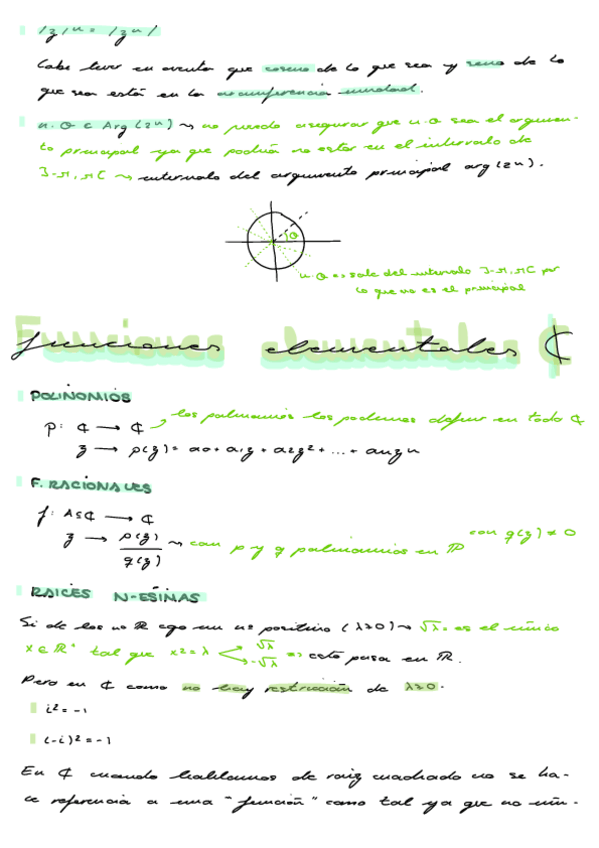 |z|ⁿ = |zⁿ|
Cabe tener en cuenta que coseno de lo que sea y seno de lo
que sea están en la circunferencia unidad.
n·θ ∈ Arg(zⁿ) ⇝ no puedo asegurar que n·θ sea el argumen-
to principal ya que podría no estar en el intervalo de
]-π,π[ ⇝ intervalo del argumento principal arg(zⁿ).
θ
n·θ => sale del intervalo ]-π,π[ por
lo que no es el principal
Funciones elementales ℂ
POLINOMIOS
p: ℂ → ℂ los polinomios los podemos definir en todo ℂ
z → p(z) = a0 + a1z + a2z² + ... + anzⁿ
F. RACIONALES
f: A⊆ℂ → ℂ
z → p(z)/q(z) ⇝ con p y q polinomios en ℙ con q(z) ≠ 0
RAICES N-ESIMAS
Si de los nº ℝ cojo un nº positivo (λ>0) ⇝ √λ = es el único
x ∈ ℝ⁺ tal que x² = λ < √λ -√λ => esto pasa en ℝ.
Pero en ℂ como no hay restricción de λ>0.
i² = -1
(-i)² = -1
En ℂ cuando hablamos de raíz cuadrada no se ha-
ce referencia a una "función" como tal ya que no